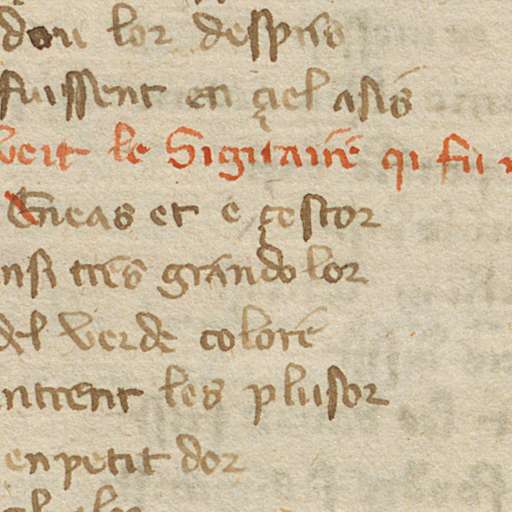 dou lor despris
fuissent en çiel asis
veit le Sigitaire qi fu
Eneas et e çestor
nsi tres grandolor
del verde colore
ntrent les plusor
en petit dor